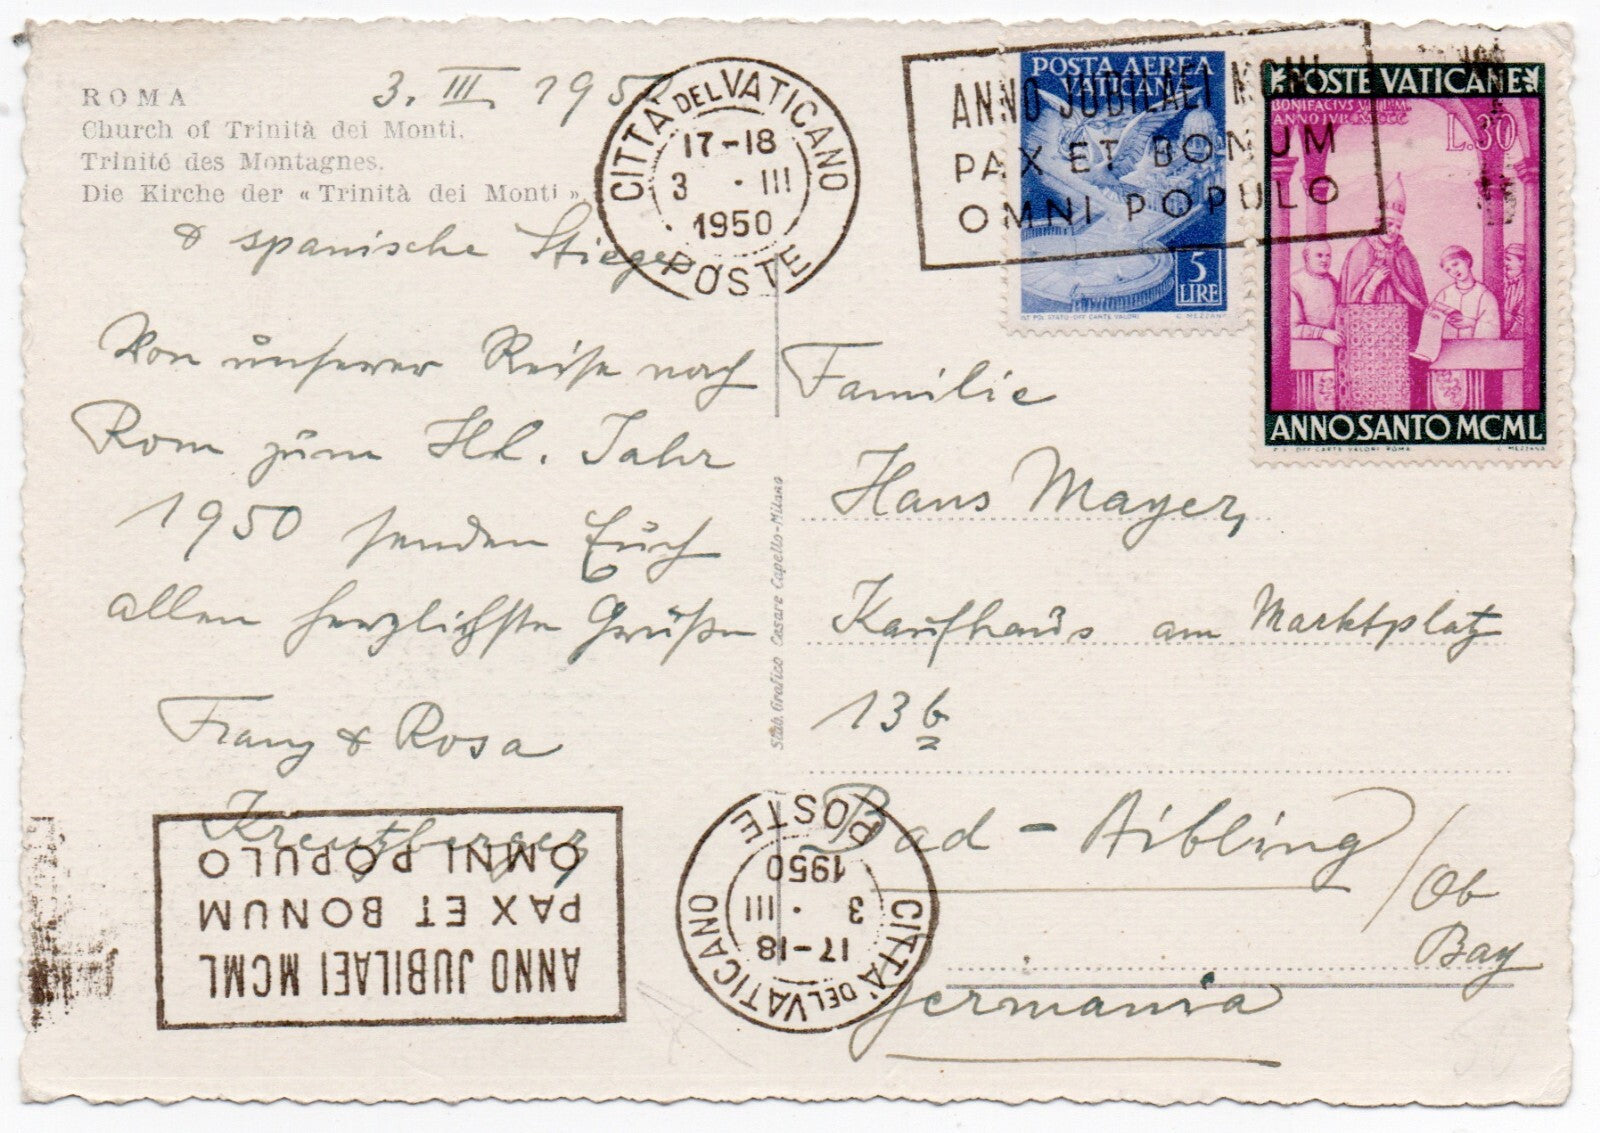 ROMA
3. III. 1950
Church of Trinità dei Monti.
Trinité des Montagnes.
Die Kirche der « Trinità dei Monti »
& spanische Stiege
Von unserer Reise nach
Rom zum Hl. Jahr
1950 senden Euch
allen herzlichste Grüße
Franz & Rosa
Kreutzberger
CITTA' DEL VATICANO
17-18
3 · III
1950
POSTE
ANNO JUBILAEI MCML
PAX ET BONUM
OMNI POPULO
POSTA AEREA
VATICANA
5
LIRE
IST. POL. STATO-OFF. CARTE VALORI
C. MEZZANA
POSTE VATICANE
BONIFACIVS VIII P.M.
L.30
ANNO SANTO MCML
OFF. CARTE VALORI ROMA
C. MEZZANA
Stab. Grafico Cesare Capello-Milano
Familie
Hans Mayer,
Kaufhaus am Marktplatz
13 b
Bad-Aibling / Ob
Bay
Germania
ANNO JUBILAEI MCML
PAX ET BONUM
OMNI POPULO
CITTA' DEL VATICANO
17-18
3 · III
1950
POSTE